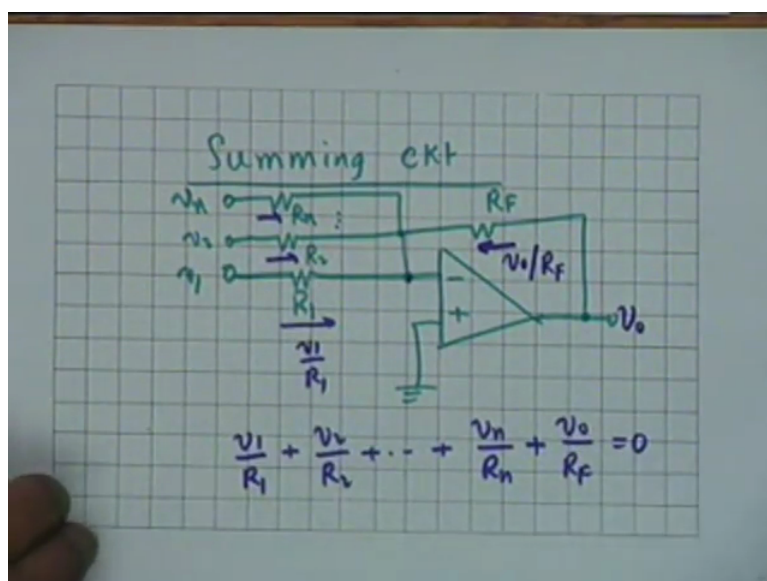 Summing ckt
vn Rn RF
v2 R2 v0/RF
v1 R1 − + v0
v1/R1
v1/R1 + v2/R2 + ··· + vn/Rn + v0/RF = 0